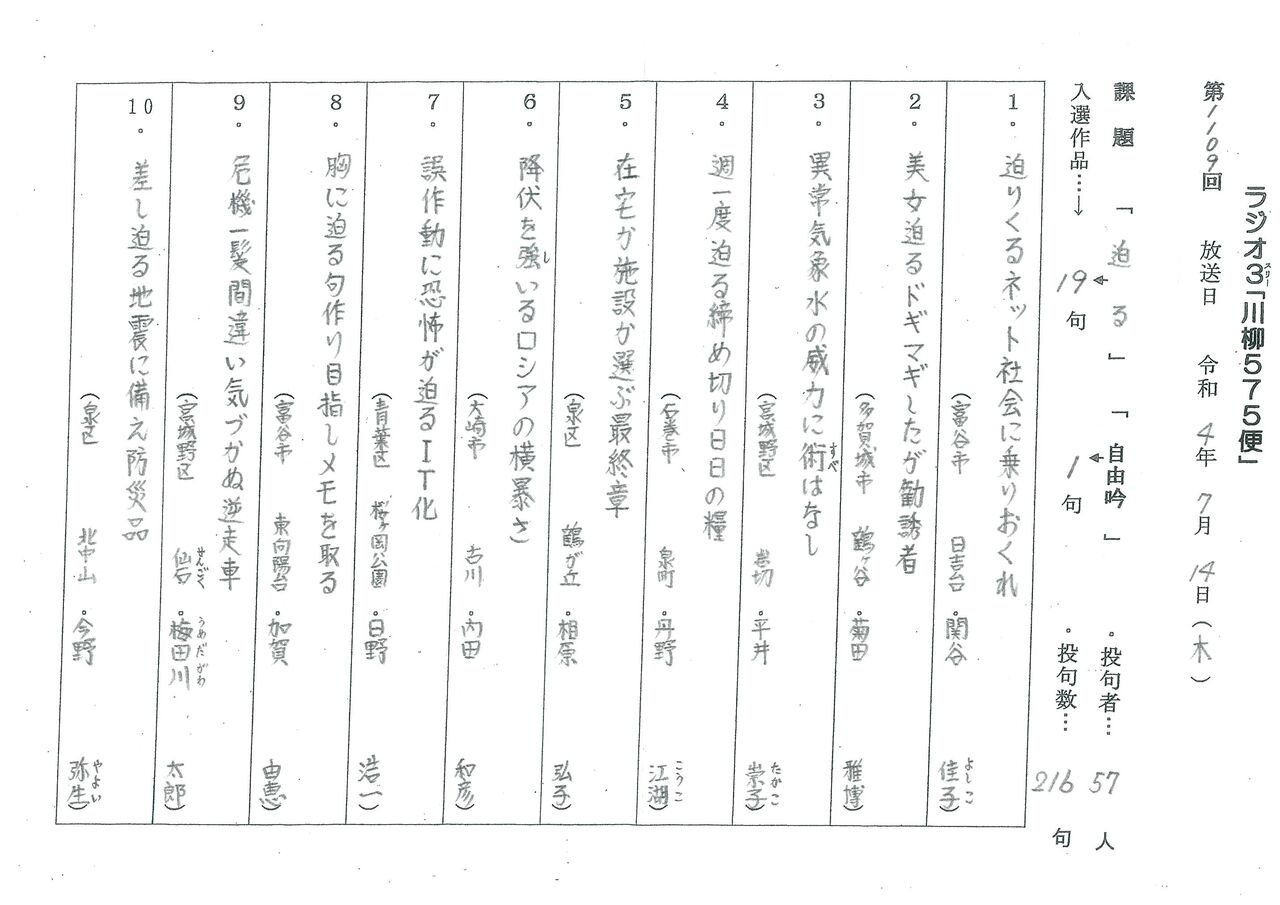 ラジオ3「川柳575便」
スリー
第1109回 放送日 令和 4年 7月 14日(木)
課題 「迫る」 「自由吟」 ・投句者… 57 人
入選作品…→ 19句 1句 ・投句数… 216 句
1. 迫りくるネット社会に乗りおくれ
(富谷市 日吉台・関谷 佳子)
よしこ
2. 美女迫るドギマギしたが勧誘者
(多賀城市 鶴ヶ谷・菊田 雅博)
3. 異常気象水の威力に術はなし
すべ
(宮城野区 岩切・平井 崇子)
たかこ
4. 週一度迫る締め切り日日の糧
(石巻市、 泉町・丹野 江湖)
こうこ
5. 在宅か施設か選ぶ最終章
(泉区 鶴が丘・相原 弘子)
6. 降伏を強いるロシアの横暴さ
し
(大崎市 古川・内田 和彦)
7. 誤作動に恐怖が迫るIT化
(青葉区 桜ヶ岡公園・日野 浩一)
8. 胸に迫る句作り目指しメモを取る
(富谷市 東向陽台・加賀 由恵)
9. 危機一髪間違い気づかぬ逆走車
(宮城野区 仙石・梅田川 太郎)
せんごく うめだがわ
10. 差し迫る地震に備え防災品
(泉区 北中山・今野 弥生)
やよい